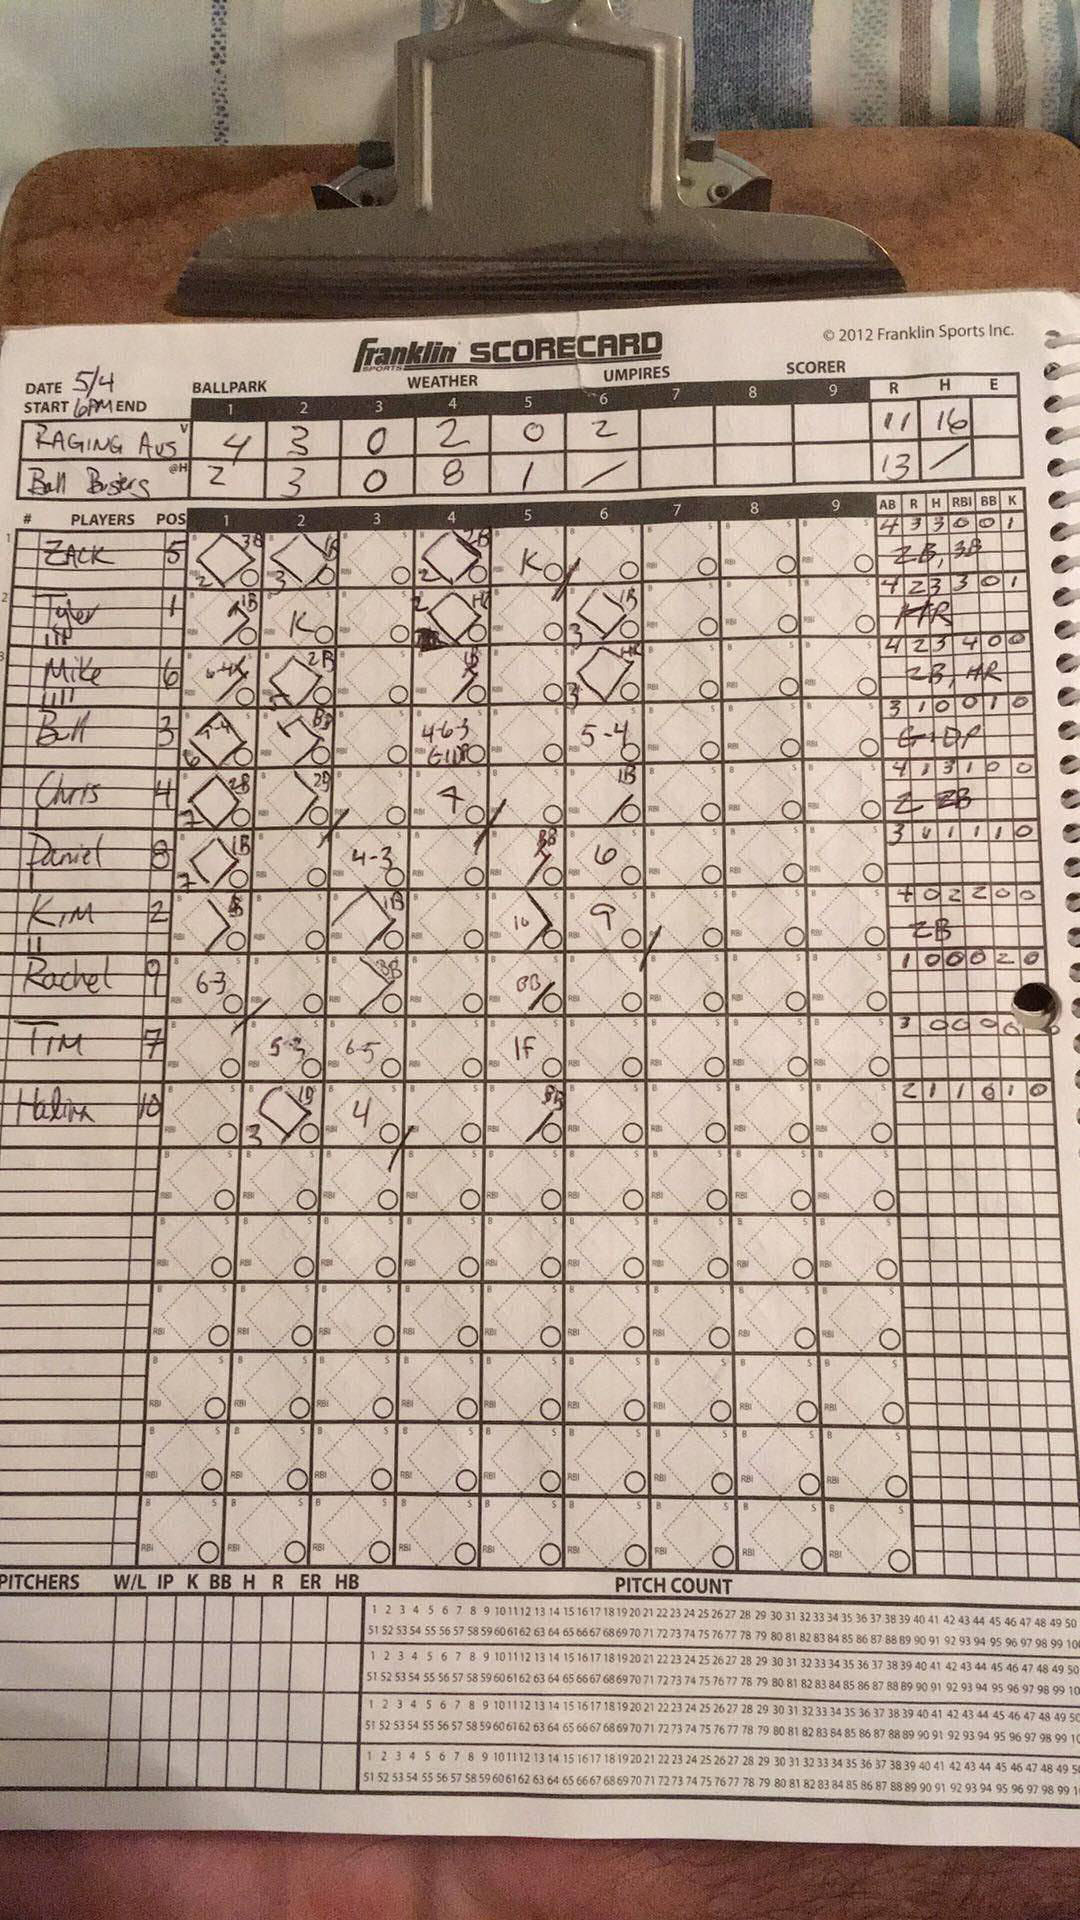 Franklin SPORTS SCORECARD
© 2012 Franklin Sports Inc.
DATE 5/4 BALLPARK WEATHER UMPIRES SCORER
START 6PM END 1 2 3 4 5 6 7 8 9 R H E
V 4 3 0 2 0 2 11 16
Ball Busters @H 2 3 0 8 1 / 13 /
# PLAYERS POS 1 2 3 4 5 6 7 8 9 AB R H RBI BB K
1 ZACK 5 3B 2 1B 3 2B 2 K 4 3 3 0 0 1
2B, 3B
2 Tyler 1 1B K HR 2 1B 3 4 2 3 3 0 1
HR
3 Mike 6 2B 1B HR 3 4 2 3 4 0 0
2B, HR
3 6 BB 4-6-3 GIDP 5-4 3 1 0 0 1 0
GIDP
Chris 4 2B 7 2B 7 1B 4 1 3 1 0 0
2 2B
Daniel 8 1B 7 4-3 BB 6 3 1 1 1 1 0
KIM 2 1B 10 9 4 0 2 2 0 0
2B
Rachel 9 6-3 BB BB 1 0 0 0 2 0
TIM 7 5-3 6-5 IF 3 0 0 0
10 1B 3 4 BB 2 1 1 0 1 0
PITCHERS W/L IP K BB H R ER HB PITCH COUNT
1 2 3 4 5 6 7 8 9 10 11 12 13 14 15 16 17 18 19 20 21 22 23 24 25 26 27 28 29 30 31 32 33 34 35 36 37 38 39 40 41 42 43 44 45 46 47 48 49 50
51 52 53 54 55 56 57 58 59 60 61 62 63 64 65 66 67 68 69 70 71 72 73 74 75 76 77 78 79 80 81 82 83 84 85 86 87 88 89 90 91 92 93 94 95 96 97 98 99 100
1 2 3 4 5 6 7 8 9 10 11 12 13 14 15 16 17 18 19 20 21 22 23 24 25 26 27 28 29 30 31 32 33 34 35 36 37 38 39 40 41 42 43 44 45 46 47 48 49 50
51 52 53 54 55 56 57 58 59 60 61 62 63 64 65 66 67 68 69 70 71 72 73 74 75 76 77 78 79 80 81 82 83 84 85 86 87 88 89 90 91 92 93 94 95 96 97 98 99 10
1 2 3 4 5 6 7 8 9 10 11 12 13 14 15 16 17 18 19 20 21 22 23 24 25 26 27 28 29 30 31 32 33 34 35 36 37 38 39 40 41 42 43 44 45 46 47 48 49 50
51 52 53 54 55 56 57 58 59 60 61 62 63 64 65 66 67 68 69 70 71 72 73 74 75 76 77 78 79 80 81 82 83 84 85 86 87 88 89 90 91 92 93 94 95 96 97 98 99 10
1 2 3 4 5 6 7 8 9 10 11 12 13 14 15 16 17 18 19 20 21 22 23 24 25 26 27 28 29 30 31 32 33 34 35 36 37 38 39 40 41 42 43 44 45 46 47 48 49 50
51 52 53 54 55 56 57 58 59 60 61 62 63 64 65 66 67 68 69 70 71 72 73 74 75 76 77 78 79 80 81 82 83 84 85 86 87 88 89 90 91 92 93 94 95 96 97 98 99 1